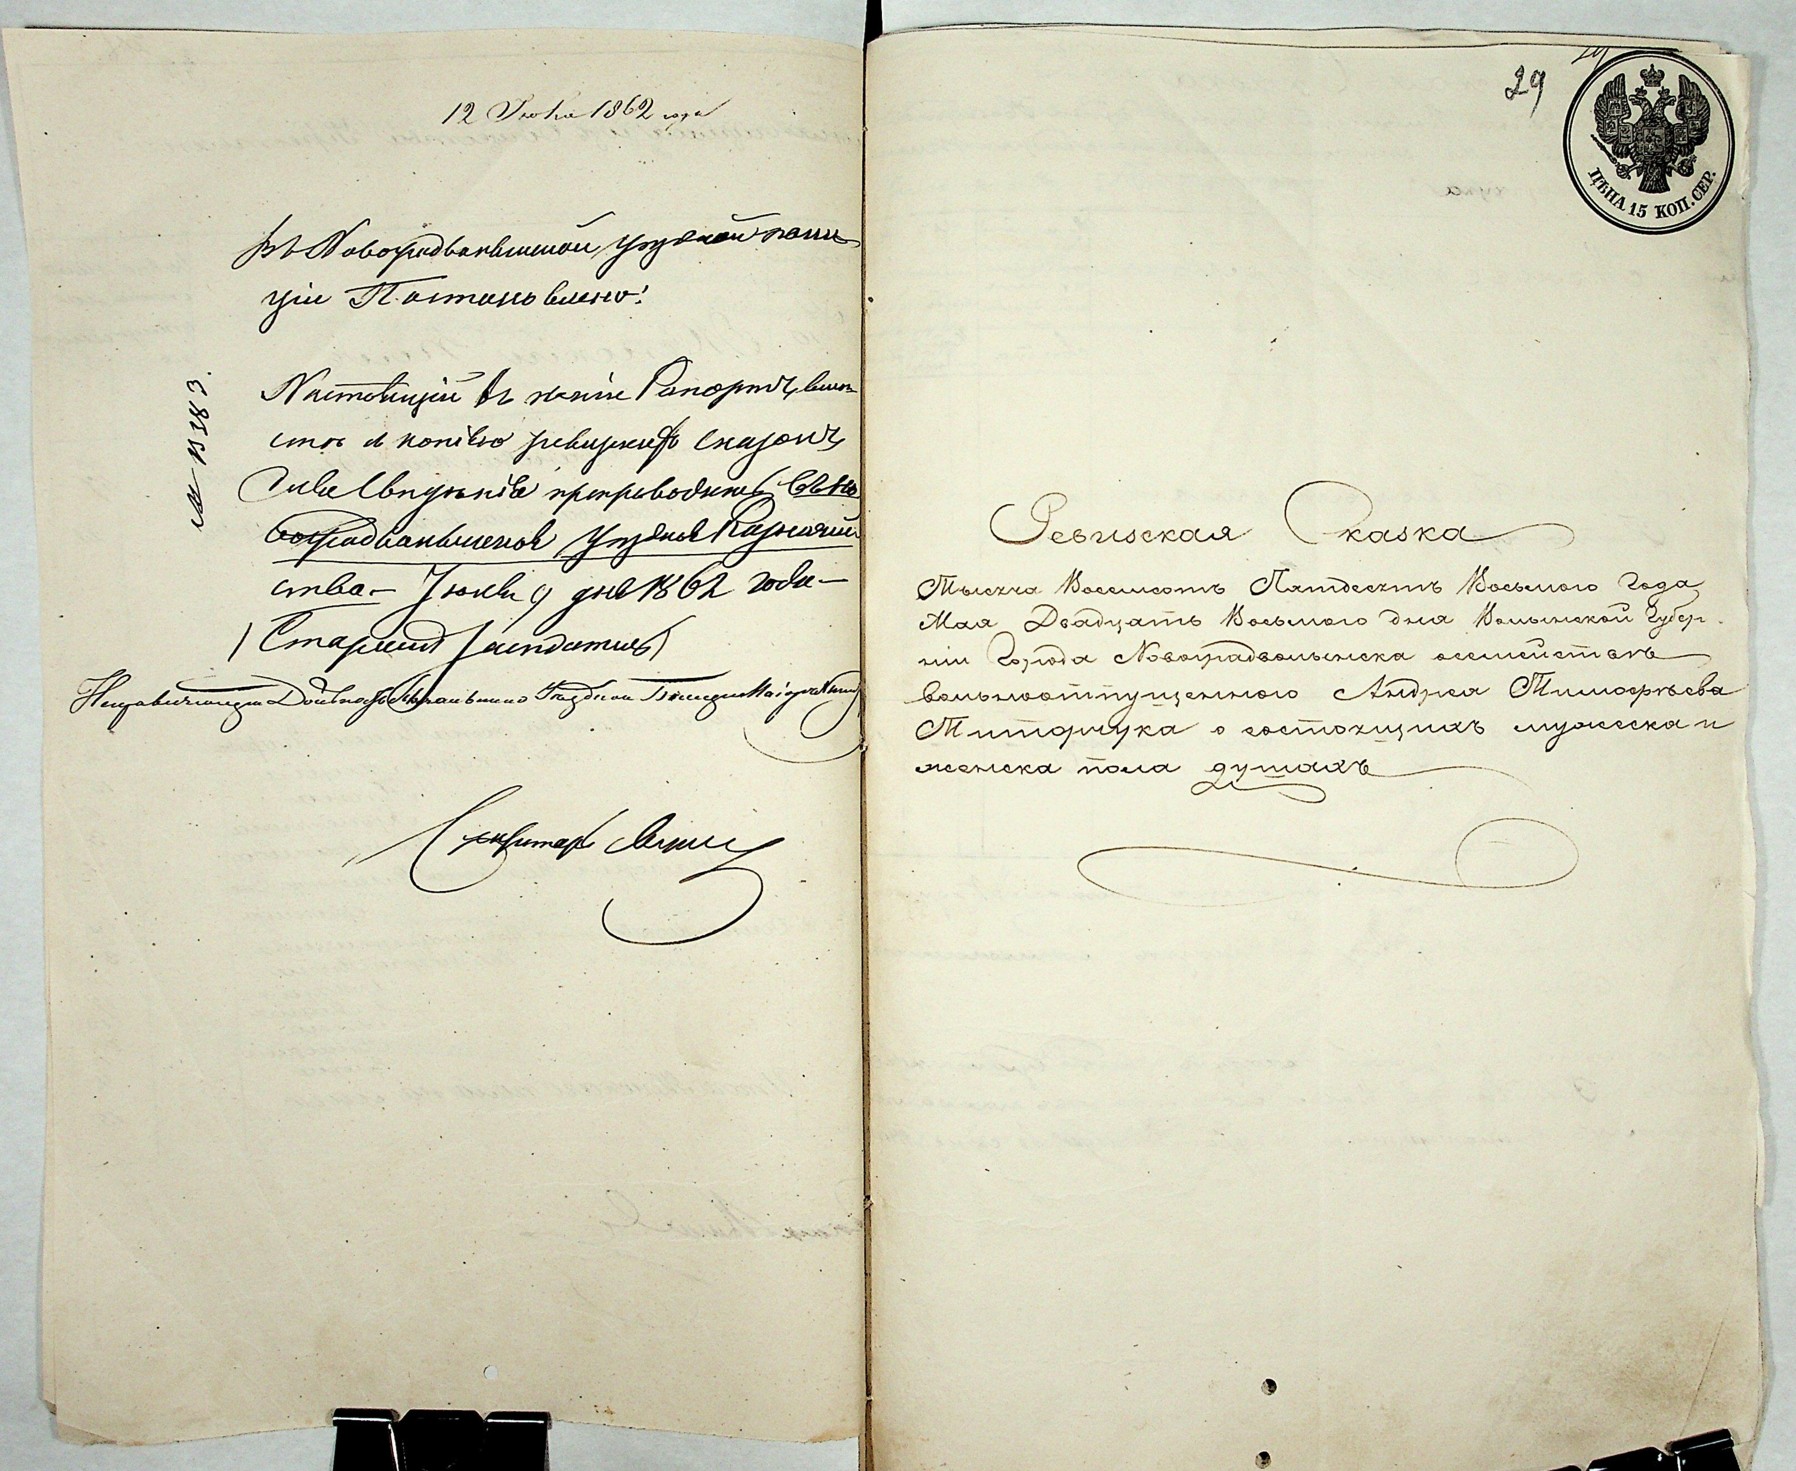 12 Июня 1862 года
Въ Новоградволынской уездной поли
ціи Постановлено:
Настоящій въ копіи Рапортъ, вмѣ
стѣ съ копіею ревизскихъ сказокъ
для Свѣдѣнія препроводить въ Но
воградволынское Уѣздное Казначей
ство – Іюня 9 дня 1862 года –
Старшій Засѣдатель
№ 18183.
Секретарь
29
ЦѢНА 15 КОП. СЕР.
Ревизская Сказка
Тысяча Восемсотъ Пятдесятъ Восьмого Года
Мая Двадцать Восьмого дня Волынской Губер-
ніи Города Новоградволынска о семействѣ
вольноотпущенного Андрея Тимофѣева
Миторчука о состоящихъ мужеска и
женска пола душахъ